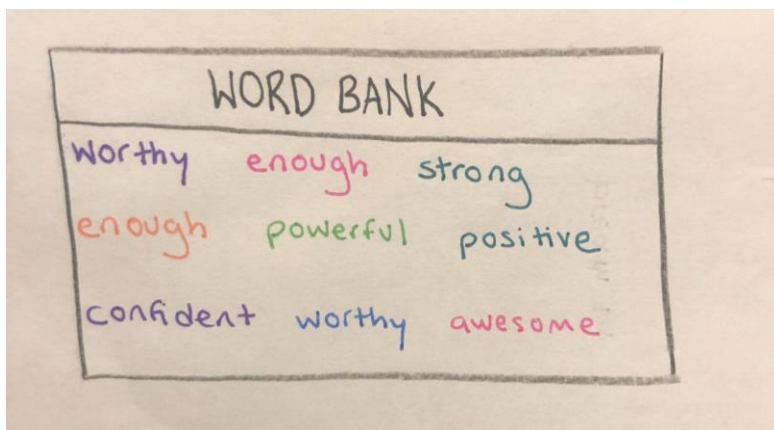 WORD BANK
worthy enough strong
enough powerful positive
confident worthy awesome